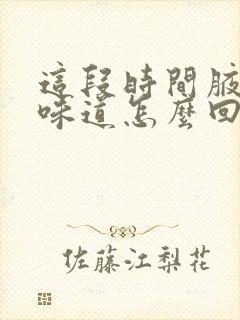 這段時間腋
味道怎麼回
佐藤江梨花